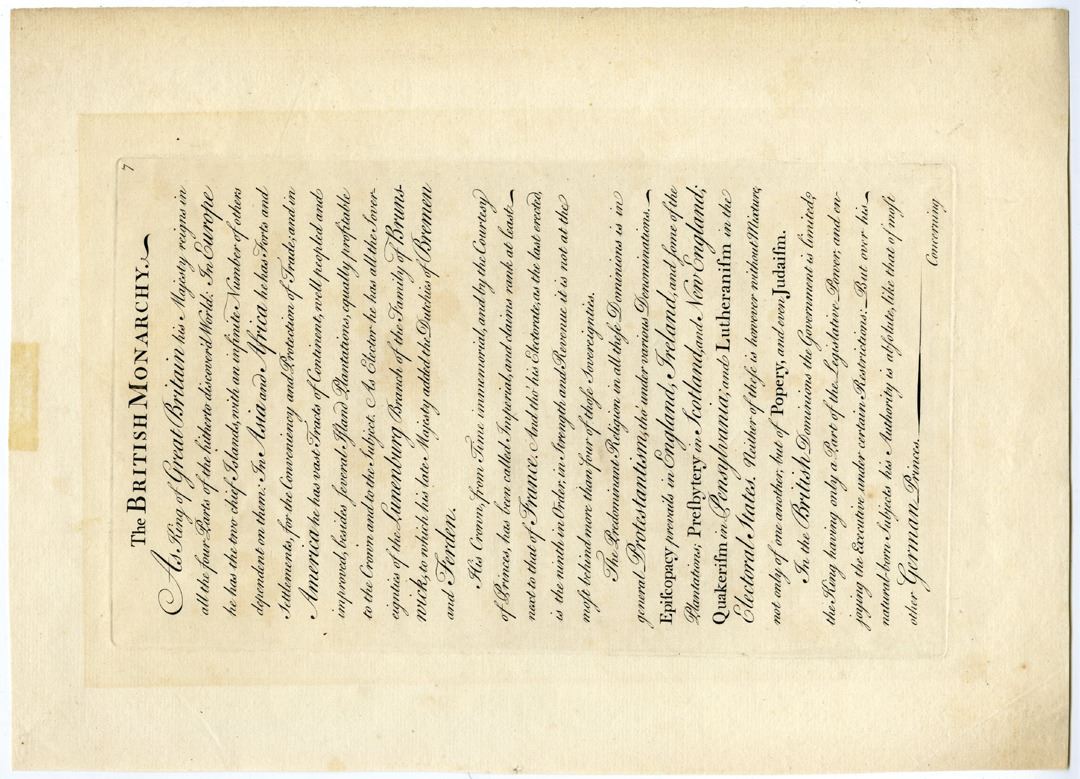 7
The BRITISH MONARCHY.
As King of Great Britain his Majesty reigns in
all the four Parts of the hitherto discover'd World: In Europe
he has the two chief Islands, with an infinite Number of others
dependent on them: In Asia and Africa he has Forts and
Settlements, for the Conveniency and Protection of Trade; and in
America he has vast Tracts of Continent, well peopled and
improved, besides several Island Plantations, equally profitable
to the Crown and to the Subject. As Elector he has all the Sover-
eignties of the Lunenburg Branch of the Family of Bruns-
wick, to which his late Majesty added the Dutchies of Bremen
and Ferden.
His Crown, from Time immemorial, and by the Courtesy
of Princes, has been called Imperial, and claims rank at least
next to that of France. And tho' his Electorate, as the last erected,
is the ninth in Order, in Strength and Revenue it is not at the
most behind more than four of those Sovereignties.
The Predominant Religion in all these Dominions is in
general Protestantism, tho' under various Denominations.
Epiſcopacy prevails in England, Ireland, and some of the
Plantations; Preſbytery in Scotland, and New England;
Quakeriſm in Pensylvania; and Lutheraniſm in the
Electoral States. Neither of these is however without Mixture,
not only of one another, but of Popery, and even Judaiſm.
In the British Dominions the Government is limited;
the King having only a Part of the Legislative Power, and en-
joying the Executive under certain Restrictions: But over his
natural-born Subjects his Authority is absolute, like that of most
other German Princes.
Concerning